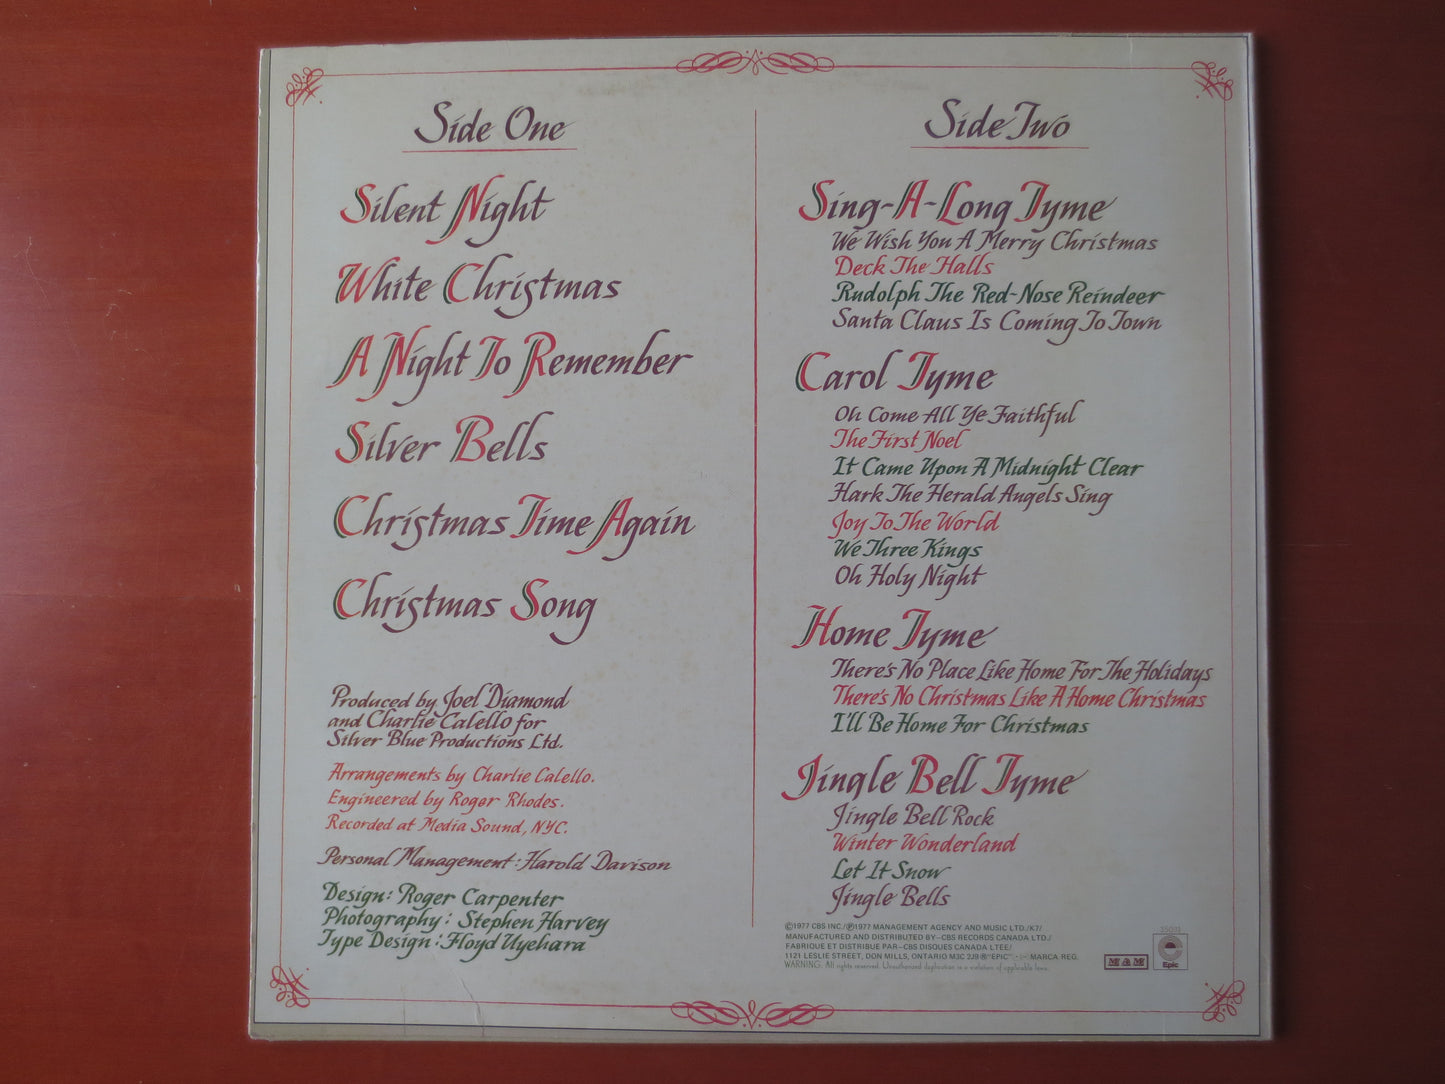 Side One
Silent Night
White Christmas
A Night To Remember
Silver Bells
Christmas Time Again
Christmas Song
Produced by Joel Diamond
and Charlie Calello for
Silver Blue Productions Ltd.
Arrangements by Charlie Calello.
Engineered by Roger Rhodes.
Recorded at Media Sound, NYC.
Personal Management: Harold Davison
Design: Roger Carpenter
Photography: Stephen Harvey
Type Design: Floyd Uyehara
Side Two
Sing-A-Long Tyme
We Wish You A Merry Christmas
Deck The Halls
Rudolph The Red-Nose Reindeer
Santa Claus Is Coming To Town
Carol Tyme
Oh Come All Ye Faithful
The First Noel
It Came Upon A Midnight Clear
Hark The Herald Angels Sing
Joy To The World
We Three Kings
Oh Holy Night
Home Tyme
There's No Place Like Home For The Holidays
There's No Christmas Like A Home Christmas
I'll Be Home For Christmas
Jingle Bell Tyme
Jingle Bell Rock
Winter Wonderland
Let It Snow
Jingle Bells
©1977 CBS INC./℗1977 MANAGEMENT AGENCY AND MUSIC LTD./K7/
MANUFACTURED AND DISTRIBUTED BY–CBS RECORDS CANADA LTD./
FABRIQUE ET DISTRIBUE PAR–CBS DISQUES CANADA LTEE/
1121 LESLIE STREET, DON MILLS, ONTARIO M3C 2J9 ®"EPIC", MARCA REG.
WARNING. All rights reserved. Unauthorized duplication is a violation of applicable laws.
MAM
Epic